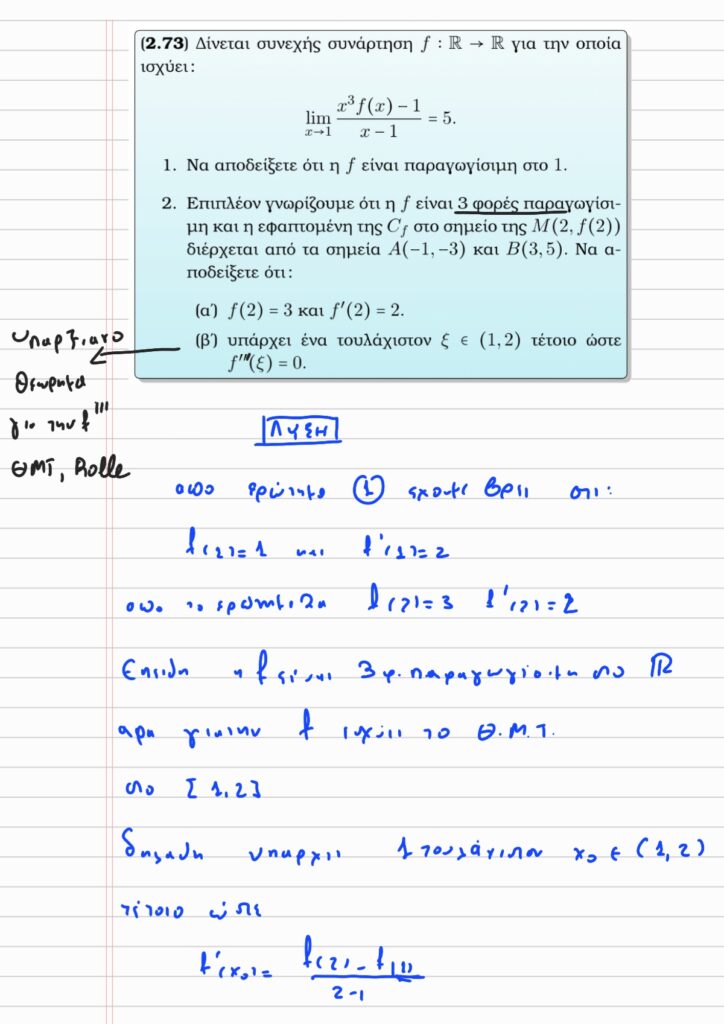 (2.73) Δίνεται συνεχής συνάρτηση f : ℝ → ℝ για την οποία
ισχύει:
lim x→1 (x³f(x) − 1)/(x − 1) = 5.
1. Να αποδείξετε ότι η f είναι παραγωγίσιμη στο 1.
2. Επιπλέον γνωρίζουμε ότι η f είναι 3 φορές παραγωγίσι-
μη και η εφαπτομένη της C_f στο σημείο της M(2, f(2))
διέρχεται από τα σημεία A(−1, −3) και B(3, 5). Να α-
ποδείξετε ότι:
(α΄) f(2) = 3 και f′(2) = 2.
(β΄) υπάρχει ένα τουλάχιστον ξ ∈ (1, 2) τέτοιο ώστε
f‴(ξ) = 0.
υπαρξιακο
Θεωρημα
για την f‴
ΘΜΤ, Rolle
ΛΥΣΗ
απο ερώτημα ① εχουμε βρει οτι:
f(1)=1 και f'(1)=2
απο το ερωτημα 2α f(2)=3 f'(2)=2
Επειδη η f είναι 3 φ. παραγωγίσιμη στο ℝ
αρα για την f ισχύει το Θ.Μ.Τ.
στο [1,2]
δηλαδη υπαρχει 1 τουλάχιστον x₀ ∈ (1,2)
τέτοιο ώστε
f'(x₀) = (f(2) − f(1))/(2−1)